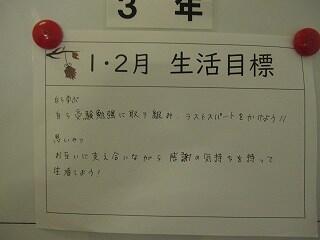 3 年
1・2月 生活目標
自ら学ぶ
自ら受験勉強に取り組み、ラストスパートをかけよう!!
思いやり
お互いに支え合いながら 感謝の気持ちを持って
生活しよう!